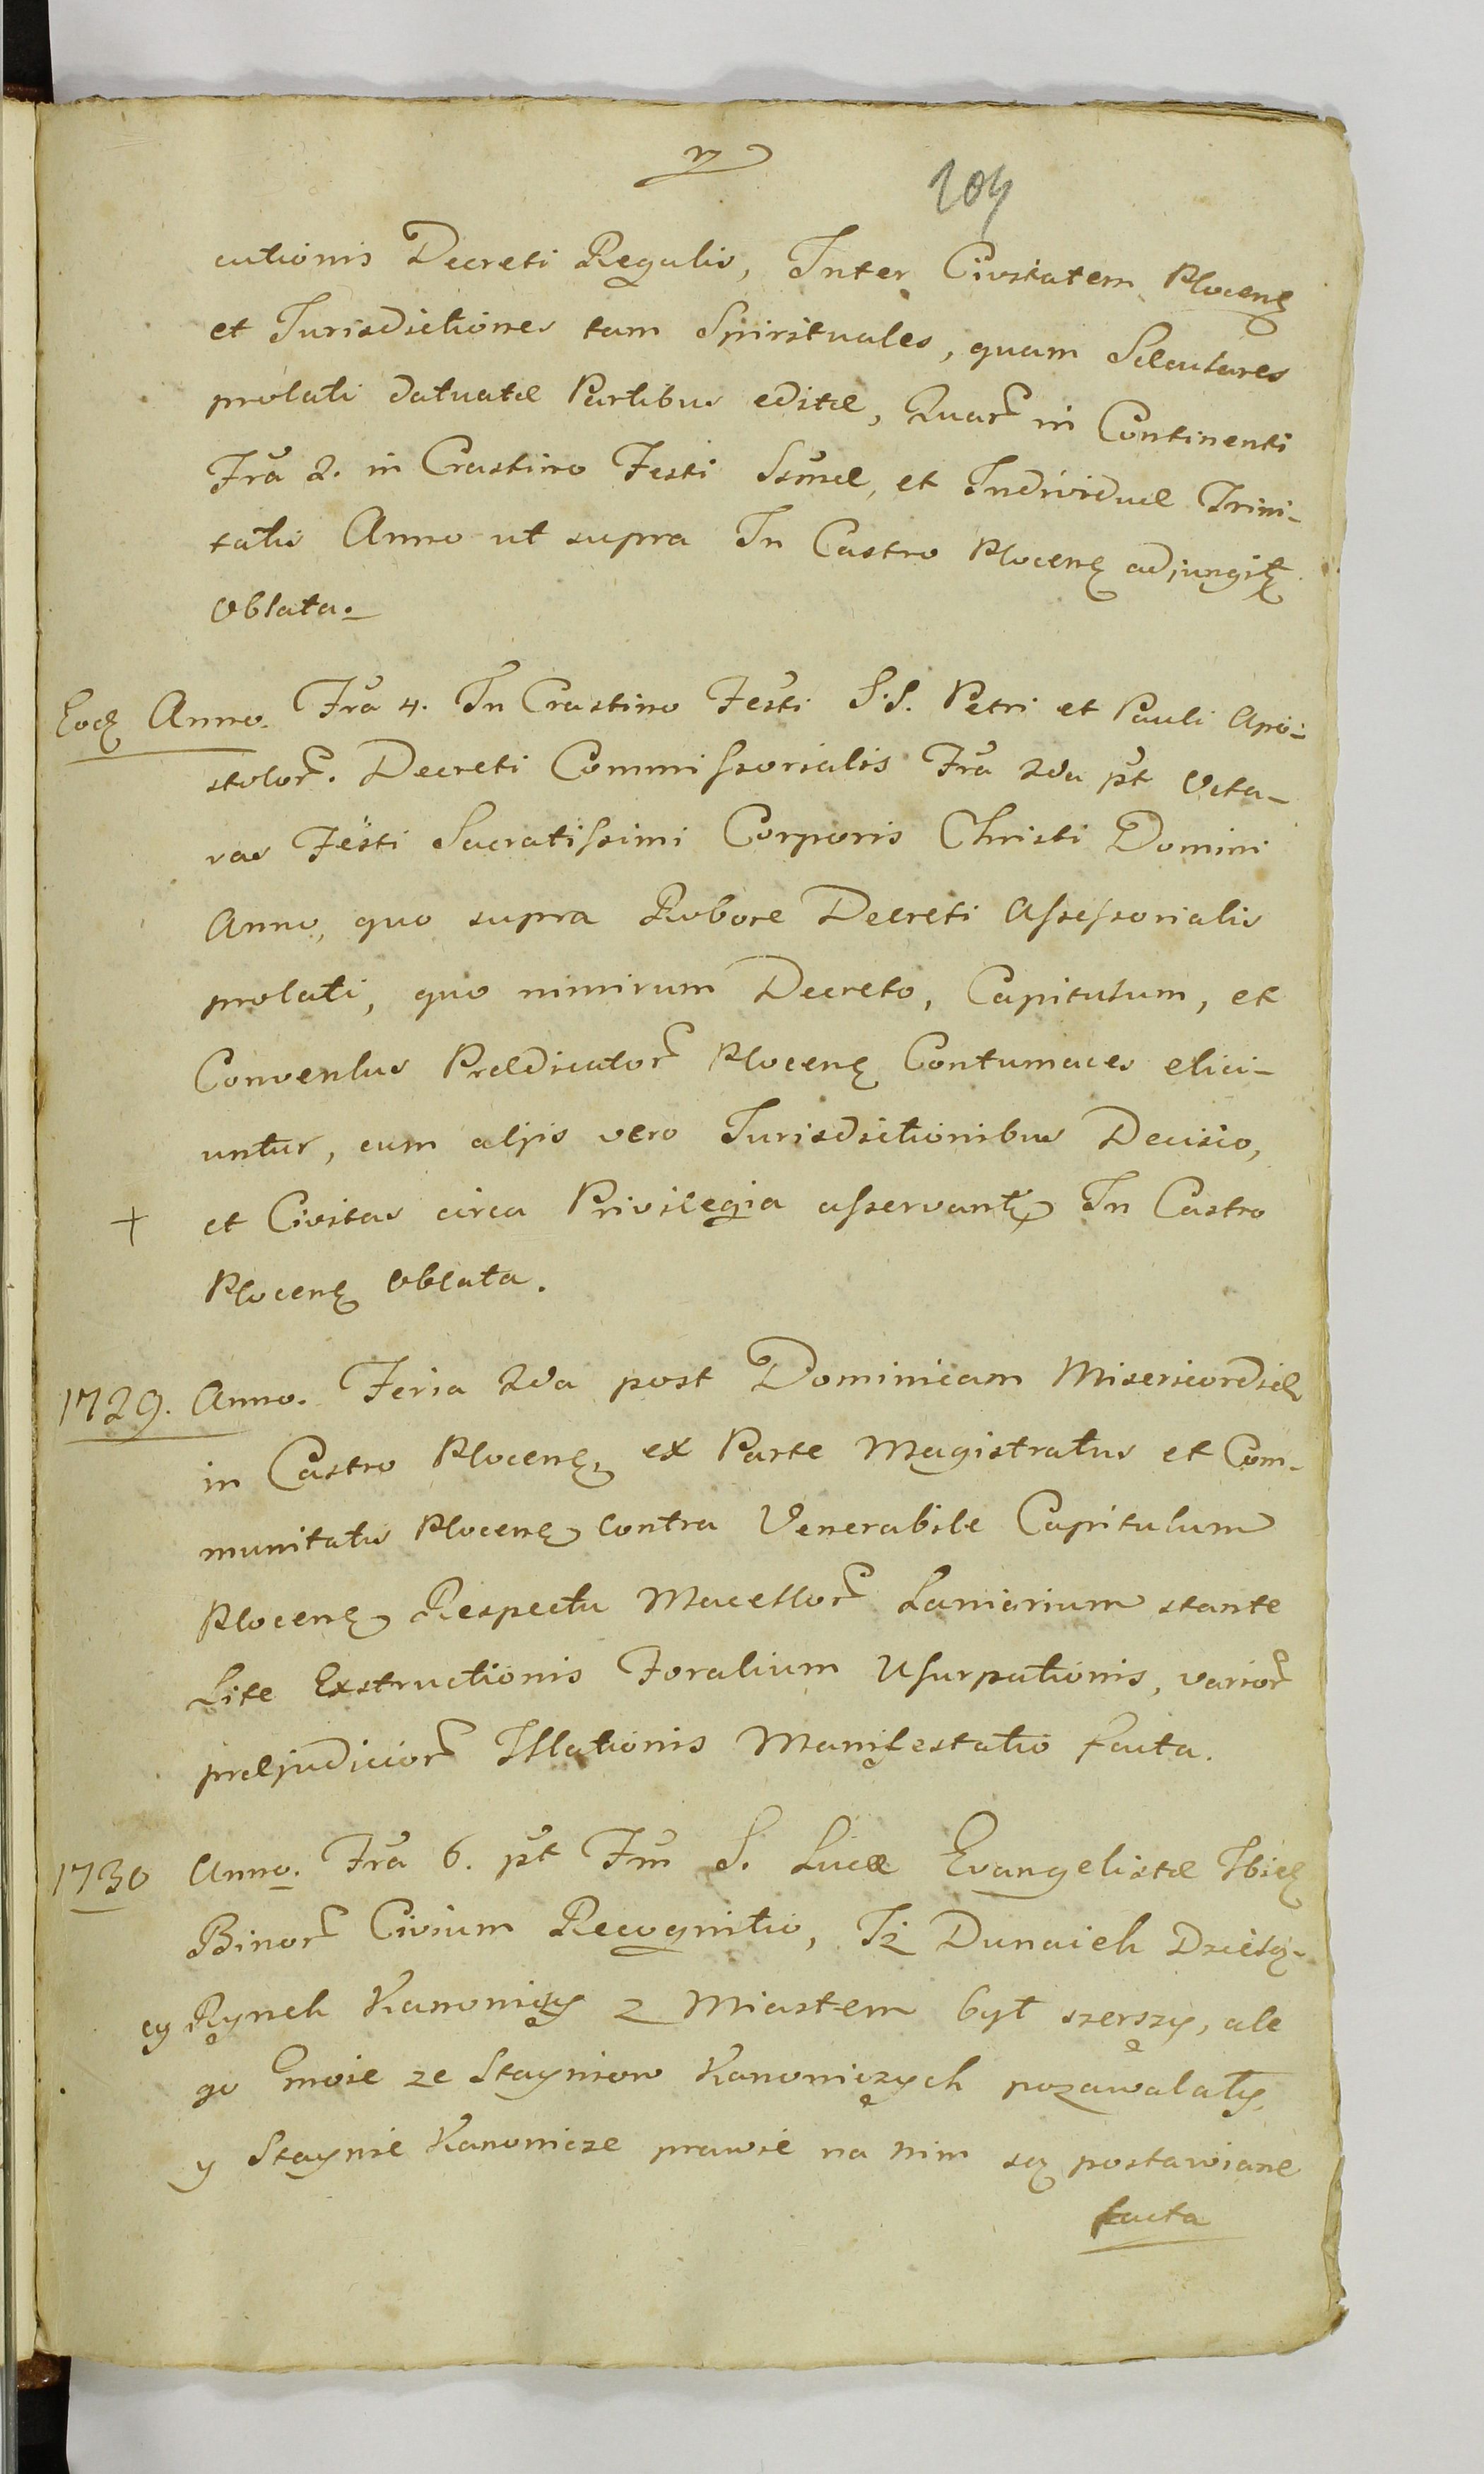 104
cutionis Decreti Regalis, Inter Civitatem Plocenę
et Jurisdictiones tam Spirituales, quam Sęculares
prolati Partibus editæ, Quar̃ in Continenti
Frã 2. in Crastino Festi Ssm̃æ, et Individuæ Trini-
tatis Anno ut supra In Castro Plocenę adjungit̃
Oblata.
Eodę Anno. Frã 4. In Crastino Festi S.S. Petri et Pauli Apo-
stolor̃. Decreti Commissorialis Frã 2da p̃t Octa-
vas Festi Sacratissimi Corporis Christi Domini
Anno, quo supra Robore Decreti Assessorialis
prolati, quo nimirum Decreto, Capitulum, et
Conventus Prædicator̃ Plocenę Contumaces elici-
untur, cum alijs vero Jurisdictionibus Decisio,
+ et Civitas circa Privilegia asservant̃ In Castro
Plocenę Oblata.
1729. Anno. Feria 2da post Dominicam Misericordiæ
in Castro Plocenę, ex Parte Magistratus et Com-
munitatis Plocenę contra Venerabile Capitulum
Plocenę Respectu Macellor̃ Laniorium stante
Lite Exstructionis Foralium Usurpationis, varior̃
præjudicior̃ Illationis Manifestatio facta.
1730 Anno. Frã 6. p̃t Fm̃ S. Lucæ Evangelistæ Ibidę
Binor̃ Civium Recognitio, Iż Dunaiek Dzielą-
cy Rynek Kanoniczy z Miastem był szerszy, ale
go Gnoie ze Stayniow Kanoniczych pozawalały,
y Staynie Kanonicze prawie na nim są postawiane
facta